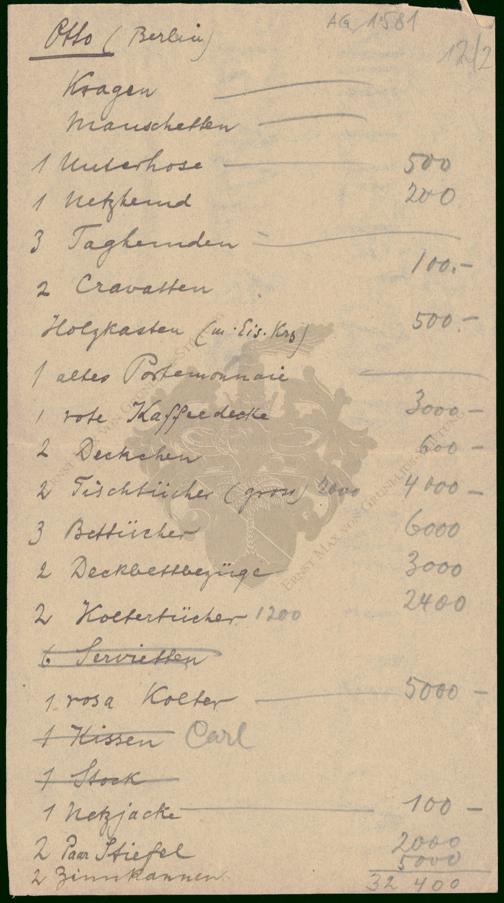 AG 1581
Otto (Berlin) 12/2
Kragen —
Manschetten —
1 Unterhose — 500
1 Netzhemd 200
3 Taghemden —
2 Cravatten 100.-
Holzkasten (m. Eis. Krz) 500.-
1 altes Portemonnaie —
1 rote Kaffeedecke 3000.-
2 Deckchen 600 -
2 Tischtücher (gross) 2000 4000 -
3 Bettücher 6000
2 Deckbettbezüge 3000
2 Koltertücher 1200 2400
6 Servietten
1 rosa Kolter — 5000 -
1 Kissen Carl
1 Stock
1 Netzjacke — 100 -
2 Paar Stiefel 2000
2 Zinnkannen 5000
32 400
ERNST MAX VON GRUNELIUS-STIFTUNG